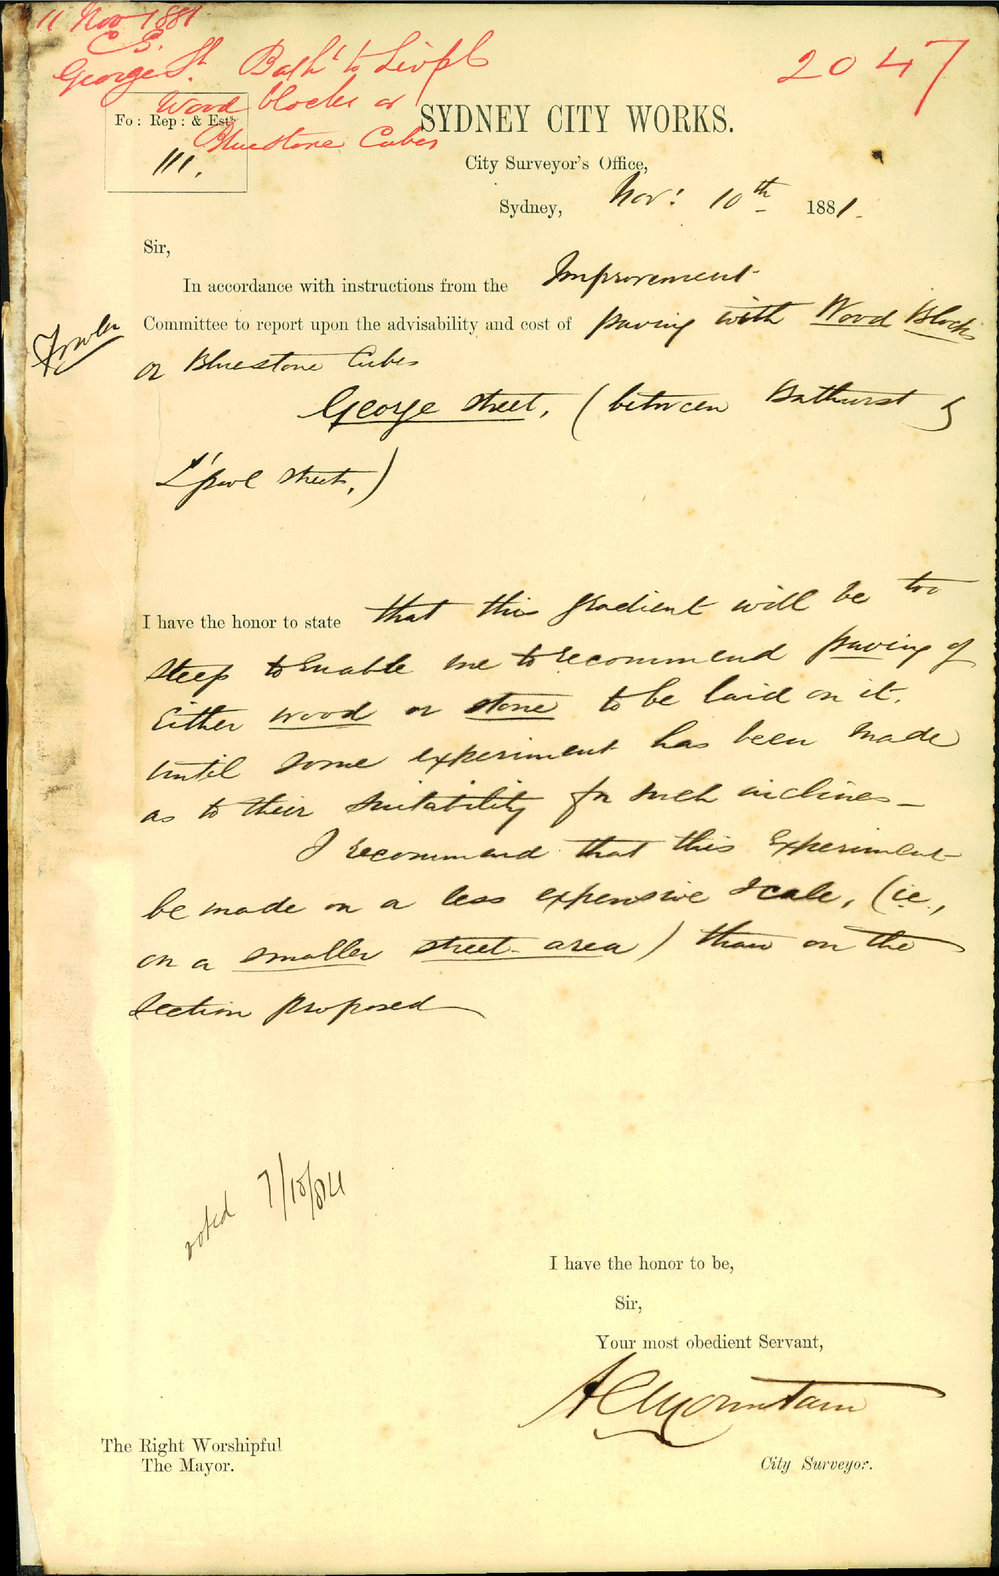 11 Nov 1881
C S.
George St. Bath^t to Livpl
Wood blocks or
Bluestone Cubes
2047
Fo: Rep: & Est:
111.
SYDNEY CITY WORKS.
City Surveyor's Office,
Sydney, Nov: 10th 1881.
Sir,
In accordance with instructions from the Improvement
Committee to report upon the advisability and cost of paving with Wood Blocks
or Bluestone Cubes
George Street, (between Bathurst &
L'pool Streets,)
I have the honor to state that this gradient will be too
steep to enable me to recommend paving of
either wood or stone to be laid on it.
until some experiment has been made
as to their suitability for such inclines—
I recommend that this experiment
be made on a less expensive scale, (ie.,
on a smaller street area) than on the
section proposed
voted 7/10/84
I have the honor to be,
Sir,
Your most obedient Servant,
A C Mountain
City Surveyor.
The Right Worshipful
The Mayor.